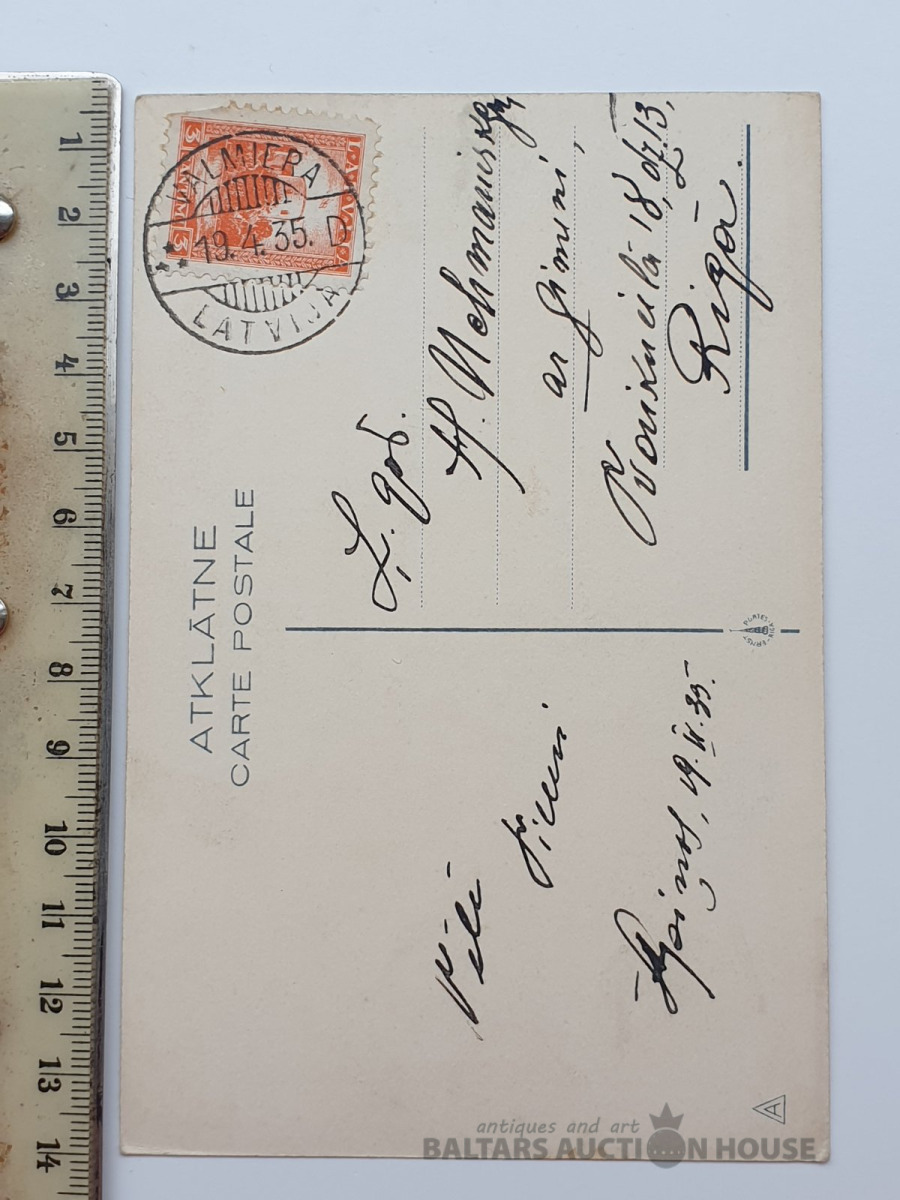 ATKLĀTNE
CARTE POSTALE
VALMIERA
19.4.35. D
LATVIJA
LATVIJA
3 3
L. god.
ar ģimeni,
18, dz. 13,
Rīgā.
Vēlē
19.IV.35.
A
antiques and art
BALTARS AUCTION HOUSE
1
2
3
4
5
6
7
8
9
10
11
12
13
14